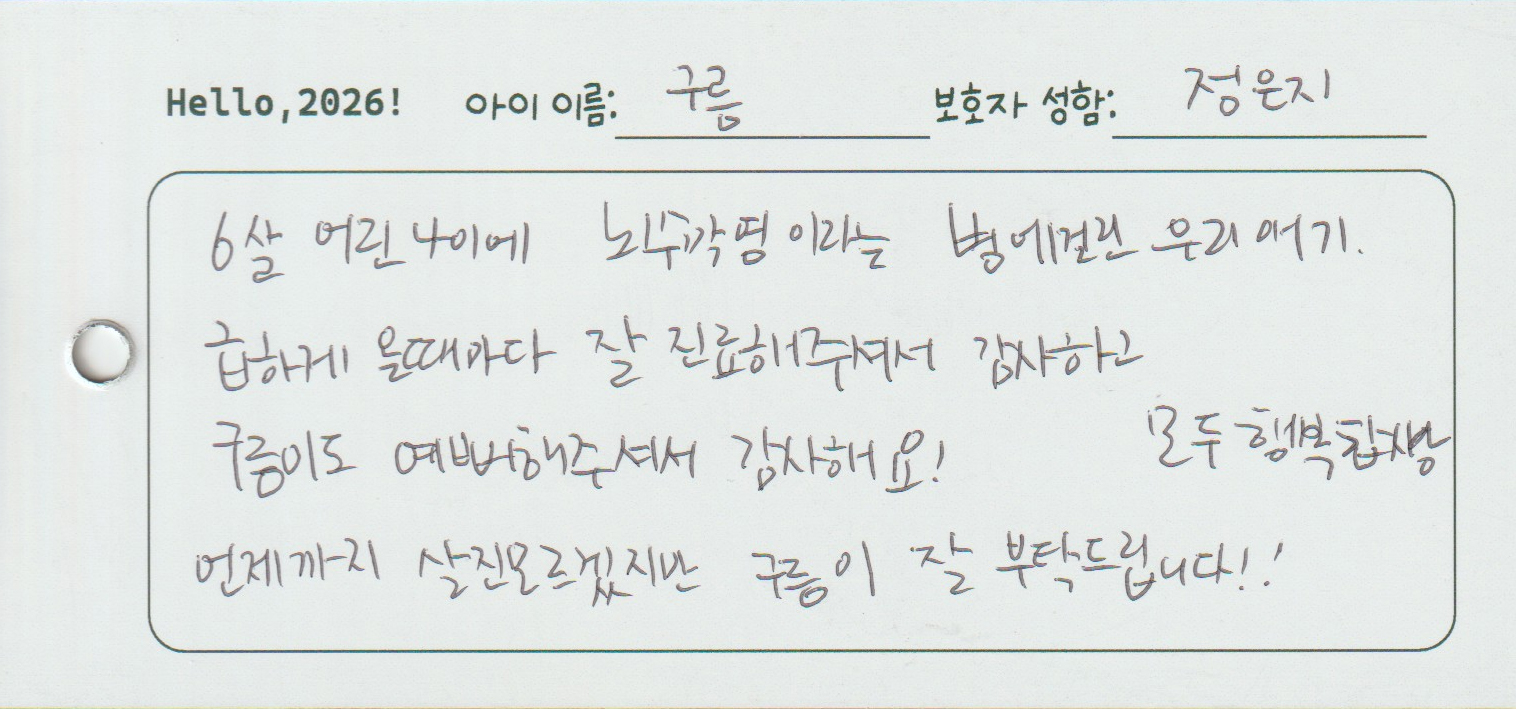 Hello,2026! 아이 이름: 구름 보호자 성함: 정은지
6살 어린 나이에 뇌수막염이라는 병에걸린 우리 애기.
급하게 올때마다 잘 진료해주셔서 감사하고
구름이도 예뻐해주셔서 감사해요!
모두 행복합시당
언제까지 살진모르겠지만 구름이 잘 부탁드립니다!!